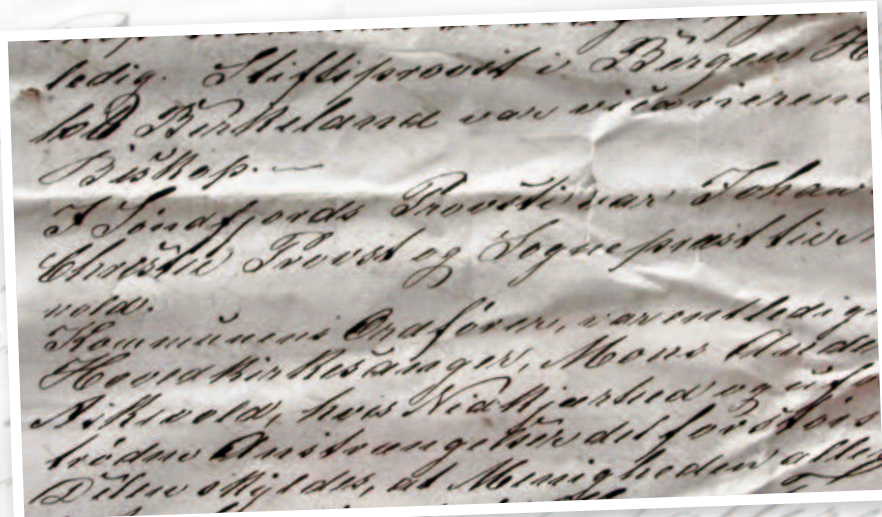 ledig. Stiftsprovst i Bergen H
Birkeland var vicarierend
Biskop. —
I Søndfjords Provsti var Johan
Christie Provst og Sognepræst til
vold.
Kommunens Ordfører, var entledige
Hovedkirkesanger, Mons Ande
Nikjærhed og
trødne Anstrængelser det for største
Delen skyldes, at Menigheden alle